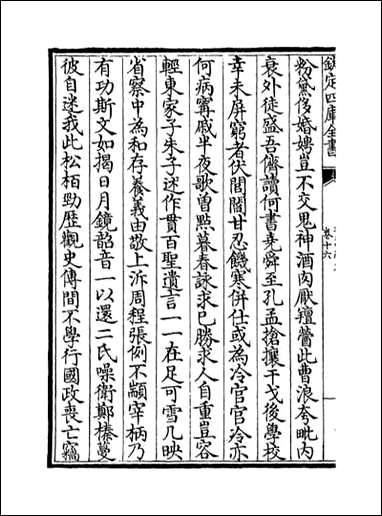 欽定四庫全書
卷十六
粉黛侈婚媾豈不交鬼神酒肉厭羶薌此曹浪夸毗内
衰外徒盛吾儕讀何書堯舜至孔孟搶攘干戈後學校
幸未屏窮者伏閭閻甘忍饑寒併仕或為冷官官冷亦
何病寗戚半夜歌曽點暮春詠求已勝求人自重豈容
輕東家子朱子述作貫百聖遺言一一在足可雪几映
省察中為和存養義由敬上泝周程張例不顓宰柄乃
有功斯文如揭日月鏡韶音一以還二氏噪衛鄭榛蔓
彼自迷我此松栢勁歴觀史傳間不學行國政喪亡竊